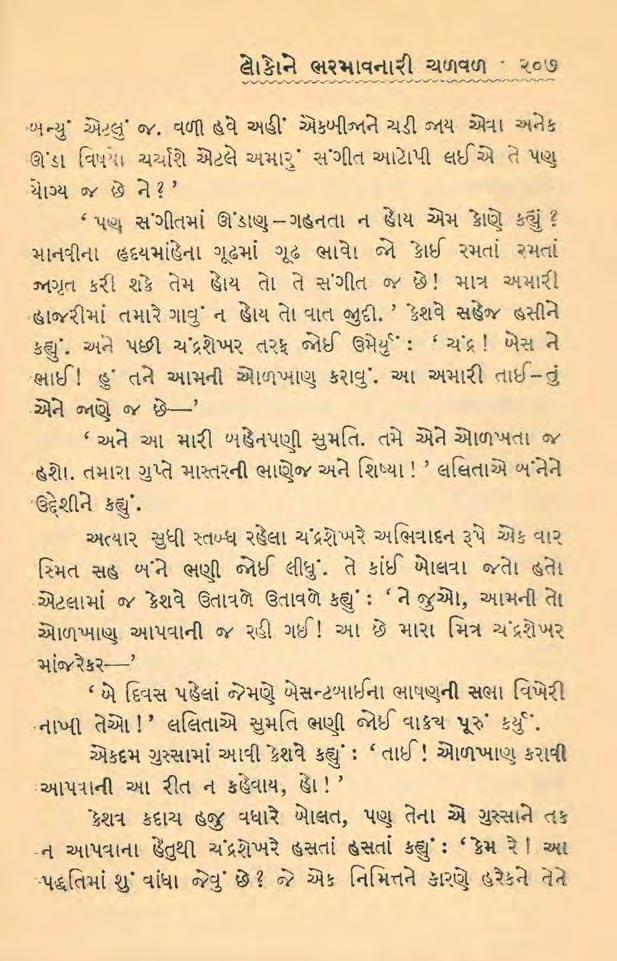 લોકોને ભરમાવનારી ચળવળ ૨૦૭
બન્યું એટલું જ. વળી હવે અહીં એકબીજાને ચડી જાય એવા અનેક
ઊંડા વિષયો ચર્ચાશે એટલે અમારું સંગીત આટોપી લઈએ તે પણ
યોગ્ય જ છે ને?’
‘પણ સંગીતમાં ઊંડાણ–ગહનતા ન હોય એમ કોણે કહ્યું?
માનવીના હૃદયમાંહેના ગૂઢમાં ગૂઢ ભાવો જો કોઈ રમતાં રમતાં
જાગૃત કરી શકે તેમ હોય તો તે સંગીત જ છે! માત્ર અમારી
હાજરીમાં તમારે ગાવું ન હોય તો વાત જુદી.’ કેશવે સહેજ હસીને
કહ્યું. અને પછી ચંદ્રશેખર તરફ જોઈ ઉમેર્યું: ‘ચંદ્ર! બેસ ને
ભાઈ! હું તને આમની ઓળખાણ કરાવું. આ અમારી તાઈ–તું
એને જાણે જ છે—’
‘અને આ મારી બહેનપણી સુમતિ. તમે એને ઓળખતા જ
હશો. તમારા ગુપ્તે માસ્તરની ભાણેજ અને શિષ્યા!’ લલિતાએ બંનેને
ઉદ્દેશીને કહ્યું.
અત્યાર સુધી સ્તબ્ધ રહેલા ચંદ્રશેખરે અભિવાદન રૂપે એક વાર
સ્મિત સહ બંને ભણી જોઈ લીધું. તે કાંઈ બોલવા જતો હતો
એટલામાં જ કેશવે ઉતાવળે ઉતાવળે કહ્યું: ‘ને જુઓ, આમની તો
ઓળખાણ આપવાની જ રહી ગઈ! આ છે મારા મિત્ર ચંદ્રશેખર
માંજરેકર—’
‘બે દિવસ પહેલાં જેમણે બેસન્ટબાઈના ભાષણની સભા વિખેરી
નાખી તેઓ!’ લલિતાએ સુમતિ ભણી જોઈ વાક્ય પૂરું કર્યું.
એકદમ ગુસ્સામાં આવી કેશવે કહ્યું: ‘તાઈ! ઓળખાણ કરાવી
આપવાની આ રીત ન કહેવાય, હો!’
કેશવ કદાચ હજુ વધારે બોલત, પણ તેના એ ગુસ્સાને તક
ન આપવાના હેતુથી ચંદ્રશેખરે હસતાં હસતાં કહ્યું: ‘કેમ રે! આ
પદ્ધતિમાં શું વાંધા જેવું છે? જે એક નિમિત્તને કારણે હરેકને તેને